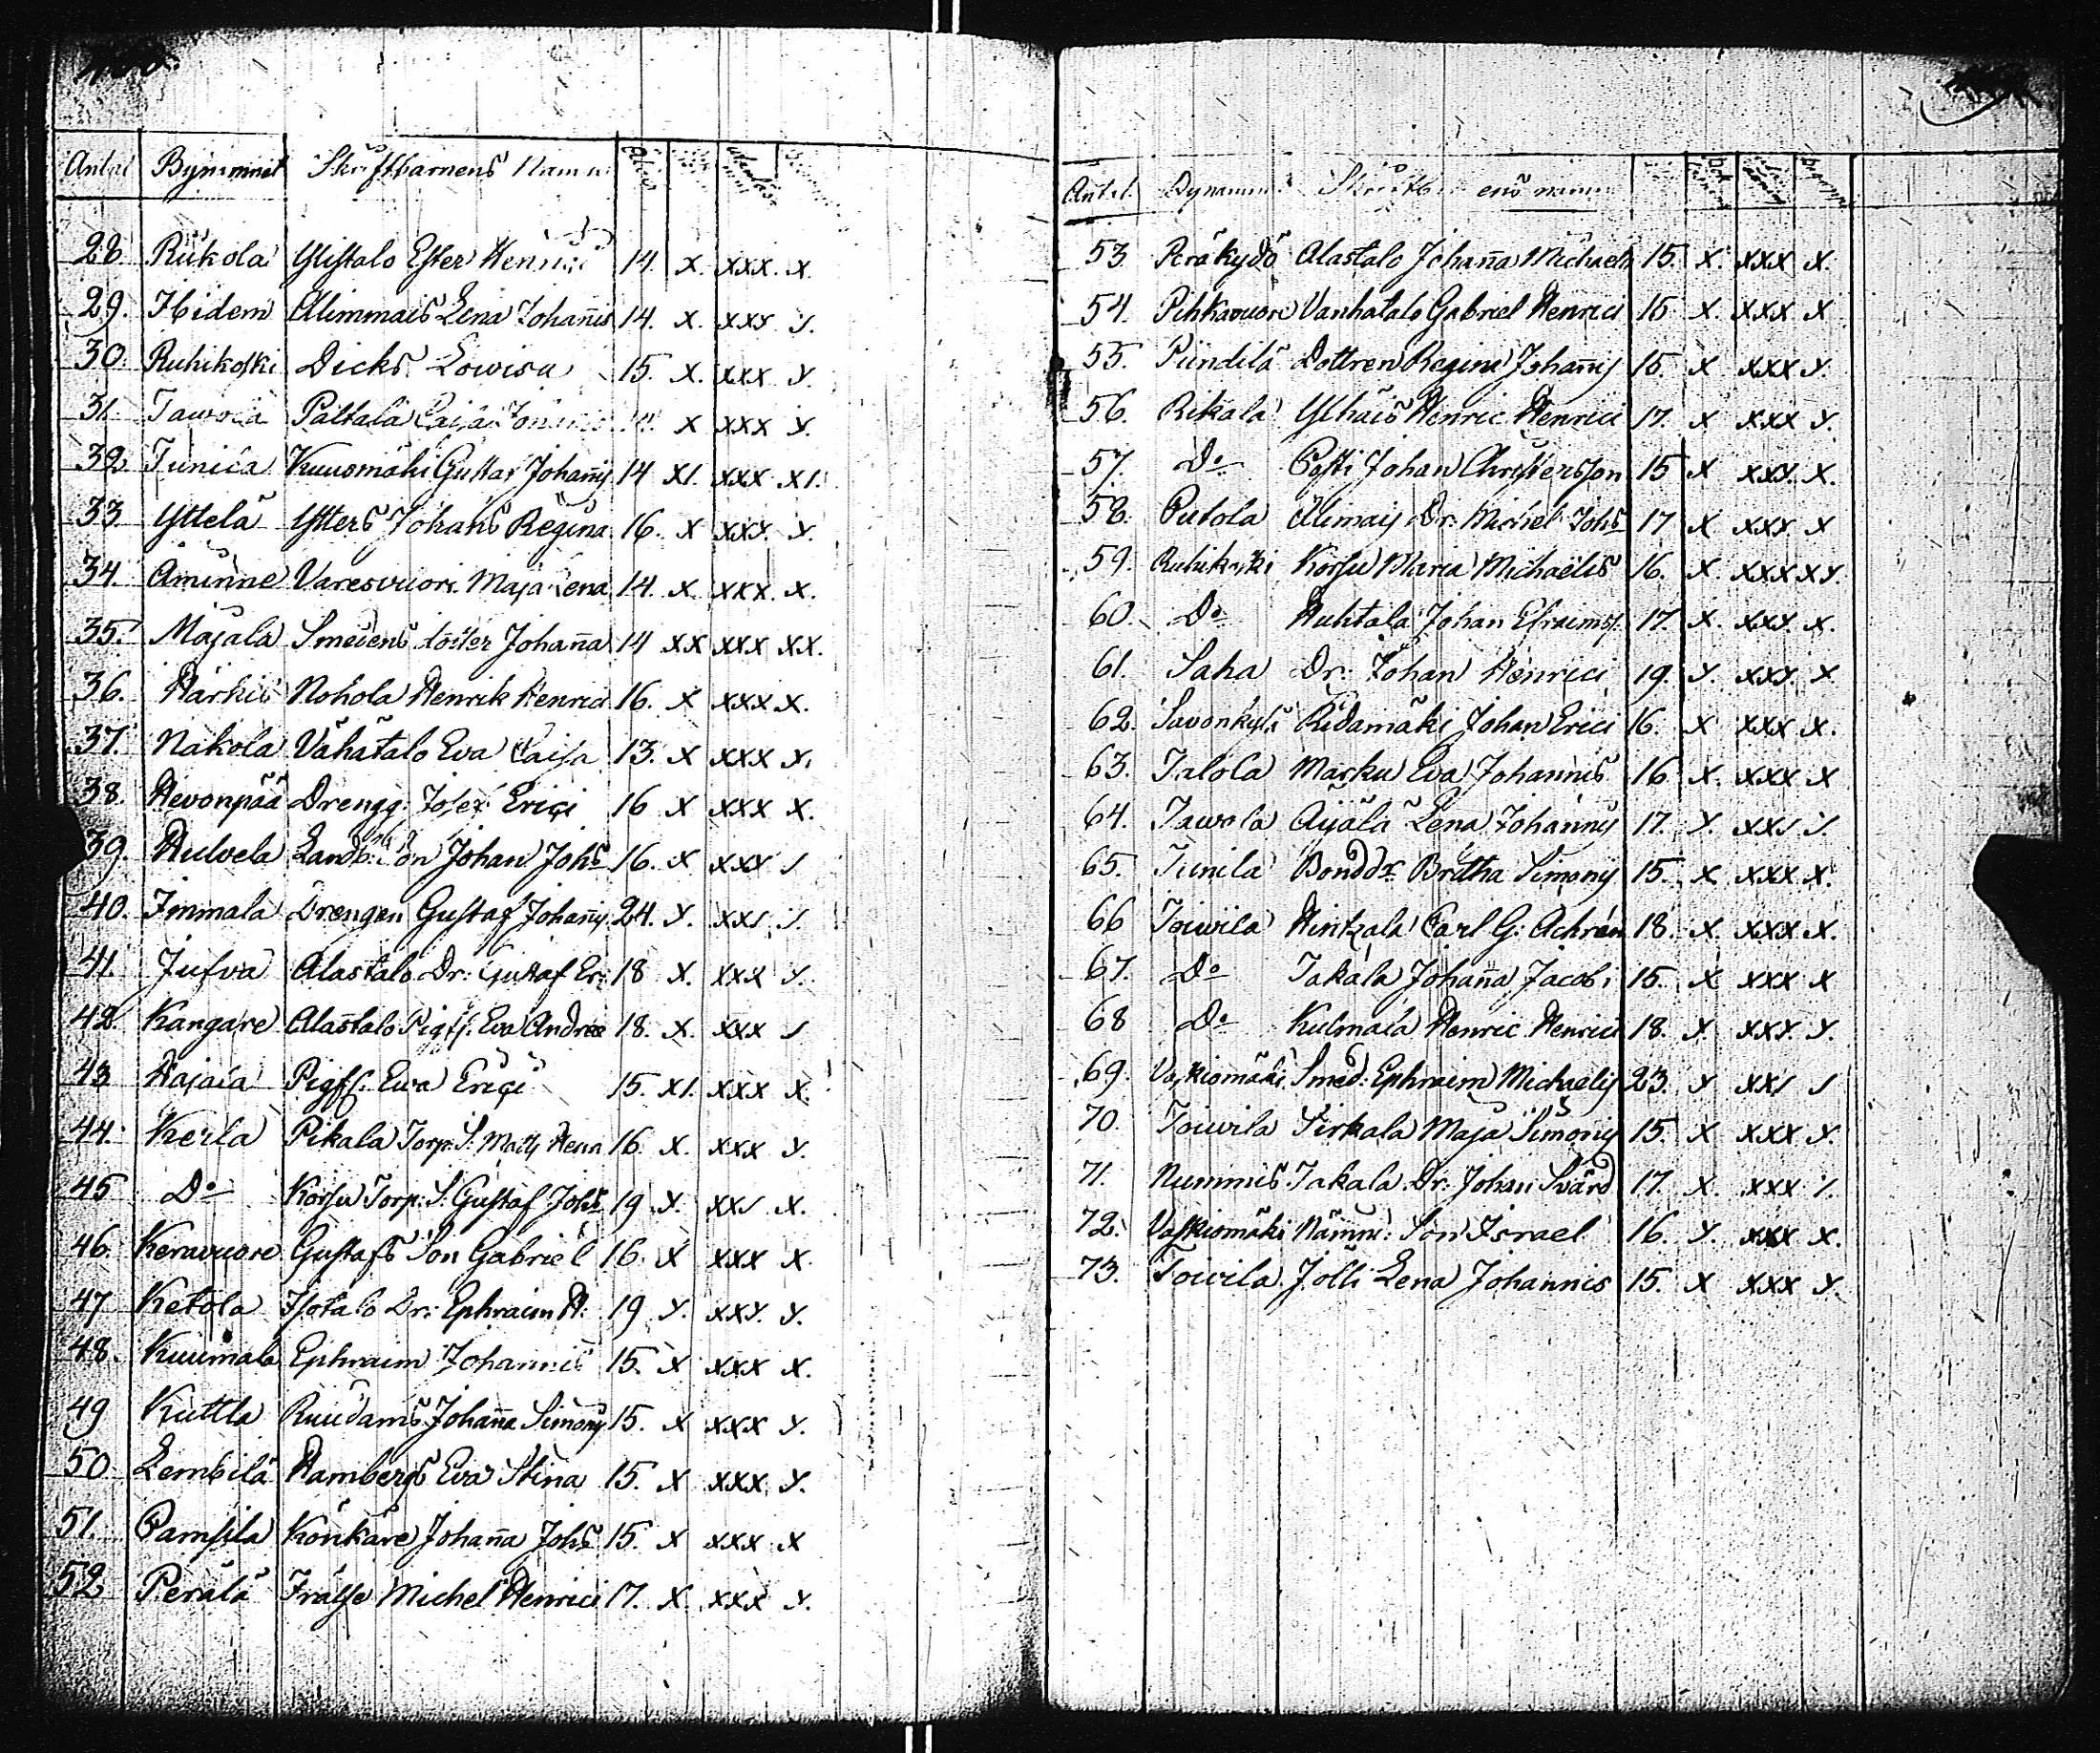 Antal Bynamnet Skriftbarnens Namn
28. Rukola Ylistalo Ester Henrici 14. x. xxx. x.
29. Hidem Alimmais Lena Johañis 14. x. xxx x.
30. Ruhikoski Dicks Lowisa 15. x. xxx x.
31. Tawola Paltala Caisa 14. x xxx x.
32. Tunila Kuusmäki Gustaf Johañis 14 x1. xxx x1.
33. Yttelä Ytters Johans Regina 16. x xxx. x.
34. Åminne Varesvuori Maja Lena 14. x xxx. x.
35. Majala Smedens doter Johaña 14 xx xxx xx.
36. Härkis Nohola Henrik Henrici 16. x xxx x.
37. Nakola Vähätalo Eva Caisa 13. x xxx x.
38. Hevonpää Drengg: Josef Erici 16 x xxx x.
39. Hulvela Landb: Son Johan Johs 16. x xxx x
40. Jnmala Drengen Gustaf Johañis 24. x. xxx x.
41. Jufva Alastalo Dr: Gustaf Er: 18 x. xxx x.
42. Kangare Alastalo Pigfl. Eva Andreæ 18. x. xxx x
43 Hajala Pigfl. Ewa Erici 15. x1. xxx x.
44. Kerla Pikala Torp: S: Matts Henr 16. x. xxx x.
45 Do Korsu Torp: S: Gustaf Johs 19 x. xxx x.
46. Keravuore Gustafs Son Gabriel 16. x xxx x.
47 Ketola Isotalo Dr: Ephraim H. 19 x. xxx. x.
48. Kuumala Ephraim Johannis 15. x xxx x.
49 Kuttla Ruudams Johaña Simonis 15. x xxx x.
50 Lembilä Hambergs Eva Stina 15. x xxx x.
51. Pamsila Könkäre Johaña Johs 15. x xxx x
52 Perälä Frälse Michel Henrici 17. x. xxx x.
Antal. Bynamn Skriftbarnens namn
53. Peräkydö Alastalo Johaña Michaels 15. x. xxx x.
54. Pihkavuore Vanhatalo Gabriel Henrici 15 x. xxx x
55. Pundilä Dottren Regina Johañis 15. x xxx x.
56. Rikala Ylhäis Henric Henrici 17. x xxx x.
57. Do Posti Johan Christersson 15 x xxx. x.
58. Putola Alimais Dr: Michel Johs 17 x xxx. x
59. Ruhikoski Korsu Maria Michaelis 16. x. xxx xx.
60. Do Huhtala Johan Efraims. 17. x. xxx. x.
61. Saha Dr: Johan Henrici 19. x. xxx. x
62. Savonkylä Ridamäki Johan Erici 16. x xxx x.
63. Talola Marku Eva Johannis 16 x. xxx x
64. Tawola Äijälä Lena Johannis 17. x. xxx x.
65. Tunila Bondd:r Britha Simonis 15. x xxx x.
66 Toiwila Hinkala Carl G: Achrén 18. x. xxx x.
67. Do Takala Johaña Jacobi 15. x xxx x
68 Do Kulmala Henric Henrici 18. x. xxx. x.
69. Vaskiomäki Smed: Ephraim Michaelis 23. x xxx x
70. Toiwila Sirkala Maja Simonis 15. x xxx x.
71. Nummis Takala Dr: Johan Svärd 17. x. xxx x.
72. Vaskiomäki Nämni: Son Israel 16. x. xxx x.
73. Toivila Jolli Lena Johannis 15. x xxx x.